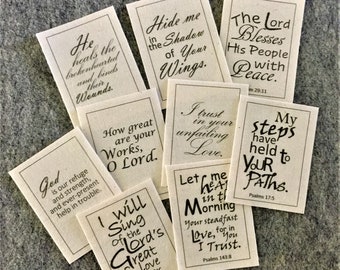 He
heals the
brokenhearted
and binds
their
Wounds.
Hide me
in the
Shadow
of Your
Wings.
The Lord
Blesses
His People
with
Peace.
Psalm 29:11
How great
are your
Works,
O Lord.
I trust
in your
unfailing
Love.
My
steps
have
held to
YOUR
PATHS.
Psalms 17:5
God
is our refuge
and strength,
and ever-present
help in trouble.
I will
Sing
of the
Lord's
Great
Love
Let me
hear
in the
Morning
Your steadfast
Love, for in
You
I Trust.
Psalms 143:8